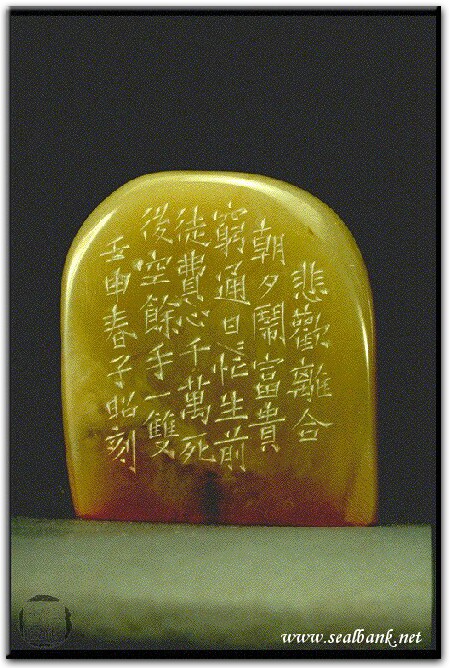 悲歡離合
朝夕鬧富貴
窮通日〻忙生前
徒費心千萬死
後空餘手一雙
壬申春子昭刻
www.sealbank.net